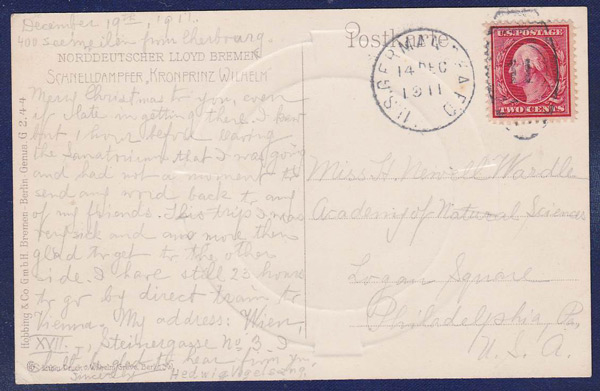 December 19th, 1911.
400 Seemeilen from Cherbourg.
NORDDEUTSCHER LLOYD BREMEN
SCHNELLDAMPFER, KRONPRINZ WILHELM
Merry Christmas to you, even
if late in getting there. I knew
but 1 hour before leaving
the Sanatorium that I was going
and had not a moment to
send any word back to any
of my friends. This trip I was
very sick and am more than
glad to get to the other
side. I have still 23 hours
to go by direct train to
Vienna. My address: Wien,
XVII., Steinergasse No 3. I
be glad to hear from you.
Sincerely
Hedwig
Hobbing & Co G.m.b.H. Bremen-Berlin Genua G 2.4-4
Postkarte
U.S. GERMAN SEA P.O.
14 DEC
1911
U.S. POSTAGE
TWO CENTS
Miss H. Newell Wardle
Academy of Natural Sciences
Logan Square
Philadelphia, Pa.
U. S. A.